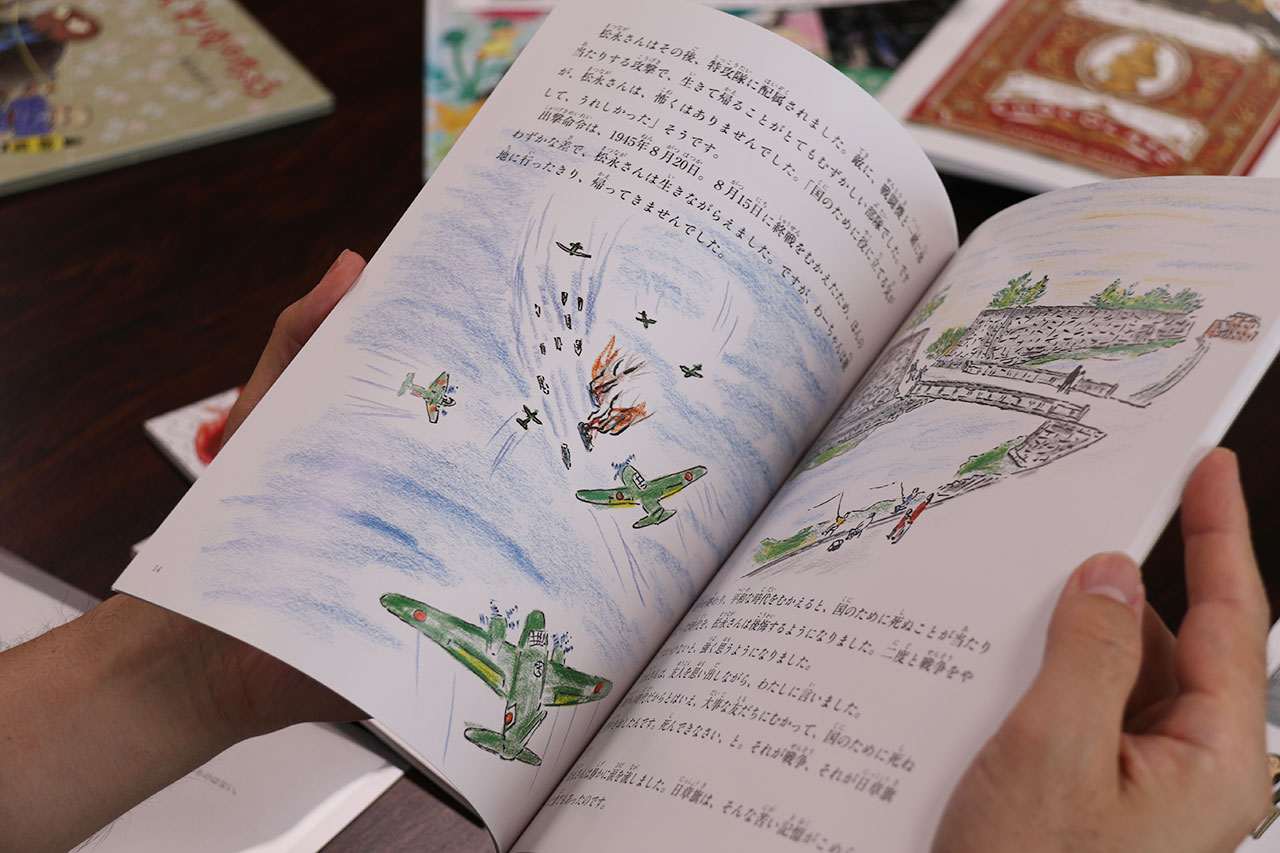 松永さんはその後、特攻隊に配属されました。敵に、戦闘機と一緒に体
当たりする攻撃で、生きて帰ることがとてもむずかしい部隊でした。です
が、松永さんは、怖くはありませんでした。「国のために役に立てる
して、うれしかった」そうです。
出撃命令は、1945年8月20日。8月15日に終戦をむかえたため、ほんの
わずかな差で、松永さんは生きながらえました。ですが、
地に行ったきり、帰ってきませんでした。
14
平和な時代をむかえると、国のために死ぬことが当たり
松永さんは後悔するようになりました。二度と戦争をや
ないと、強く思うようになりました。
友人を思い出しながら、わたしに言いました。
時代だからとはいえ、大事な友だちにむかって、国のために死ぬ
したんです。死んできなさい、と。それが戦争、それが日章旗
さんは静かに涙を流しました。日章旗は、そんな苦い記憶がこめ
でもあったのです。